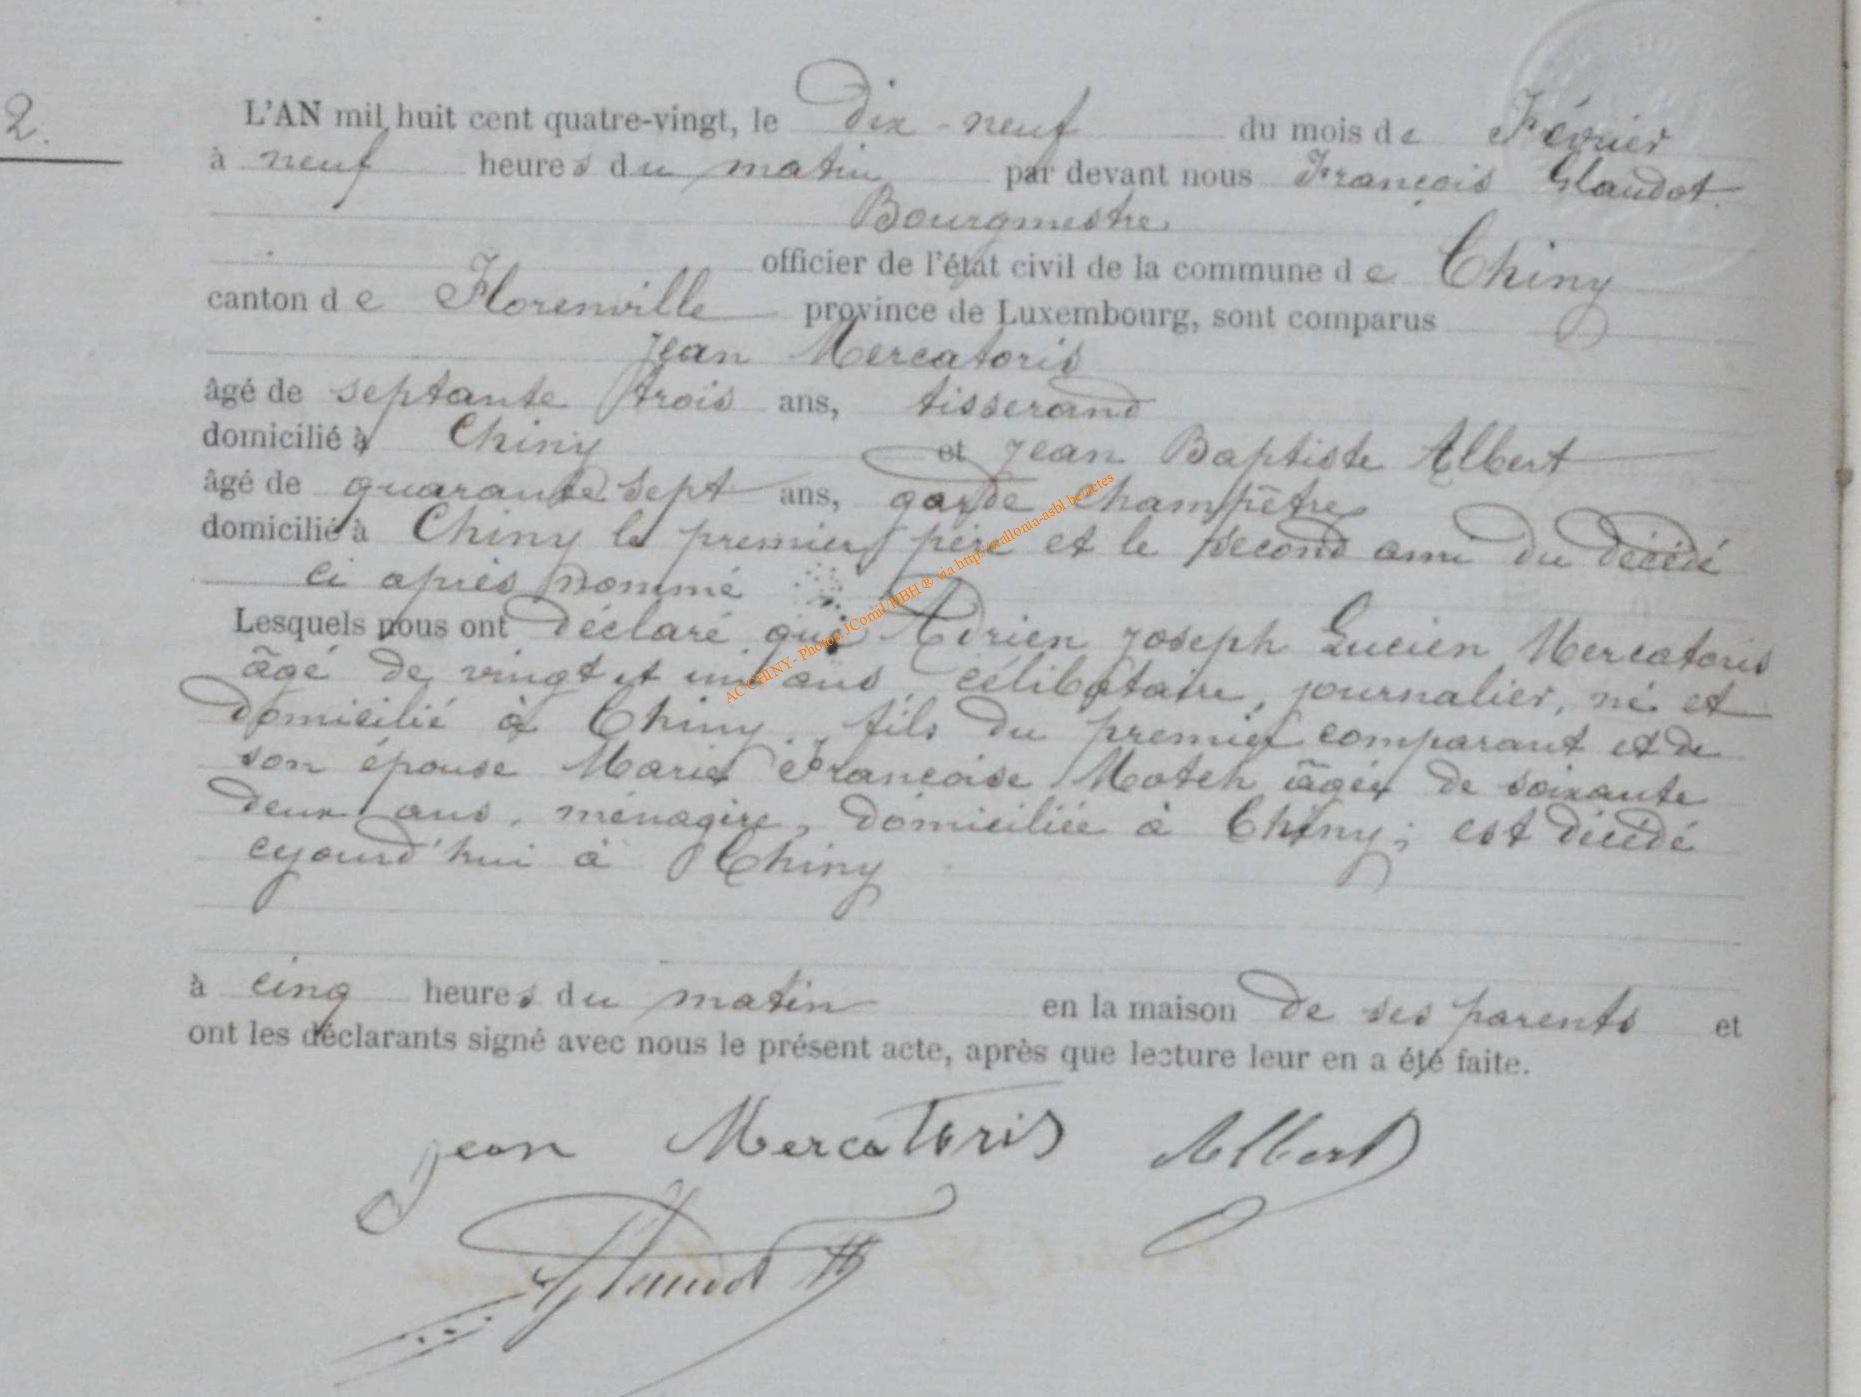 2.
L'AN mil huit cent quatre-vingt, le Dix-neuf du mois de Février
à neuf heures du matin par devant nous François Glaudot
Bourgmestre
officier de l'état civil de la commune de Chiny
canton de Florenville province de Luxembourg, sont comparus
Jean Mercatoris
âgé de septante trois ans, tisserand
domicilié à Chiny et Jean Baptiste Albert
âgé de quarante sept ans, garde champêtre
domicilié à Chiny le premier père et le second ami du décédé
ci après nommé
Lesquels nous ont déclaré que Adrien Joseph Lucien Mercatoris
âgé de vingt et un ans, célibataire, journalier, né et
domicilié à Chiny, fils du premier comparant et de
son épouse Marie Françoise Motch âgée de soixante
deux ans, ménagère, domiciliée à Chiny; est décédé
cejourd'hui à Chiny
à cinq heures du matin en la maison de ses parents et
ont les déclarants signé avec nous le présent acte, après que lecture leur en a été faite.
Jean Mercatoris Albert
Glaudot
ACCHINY - Photos JComil UBH ® via http://wallonia-asbl.be/actes